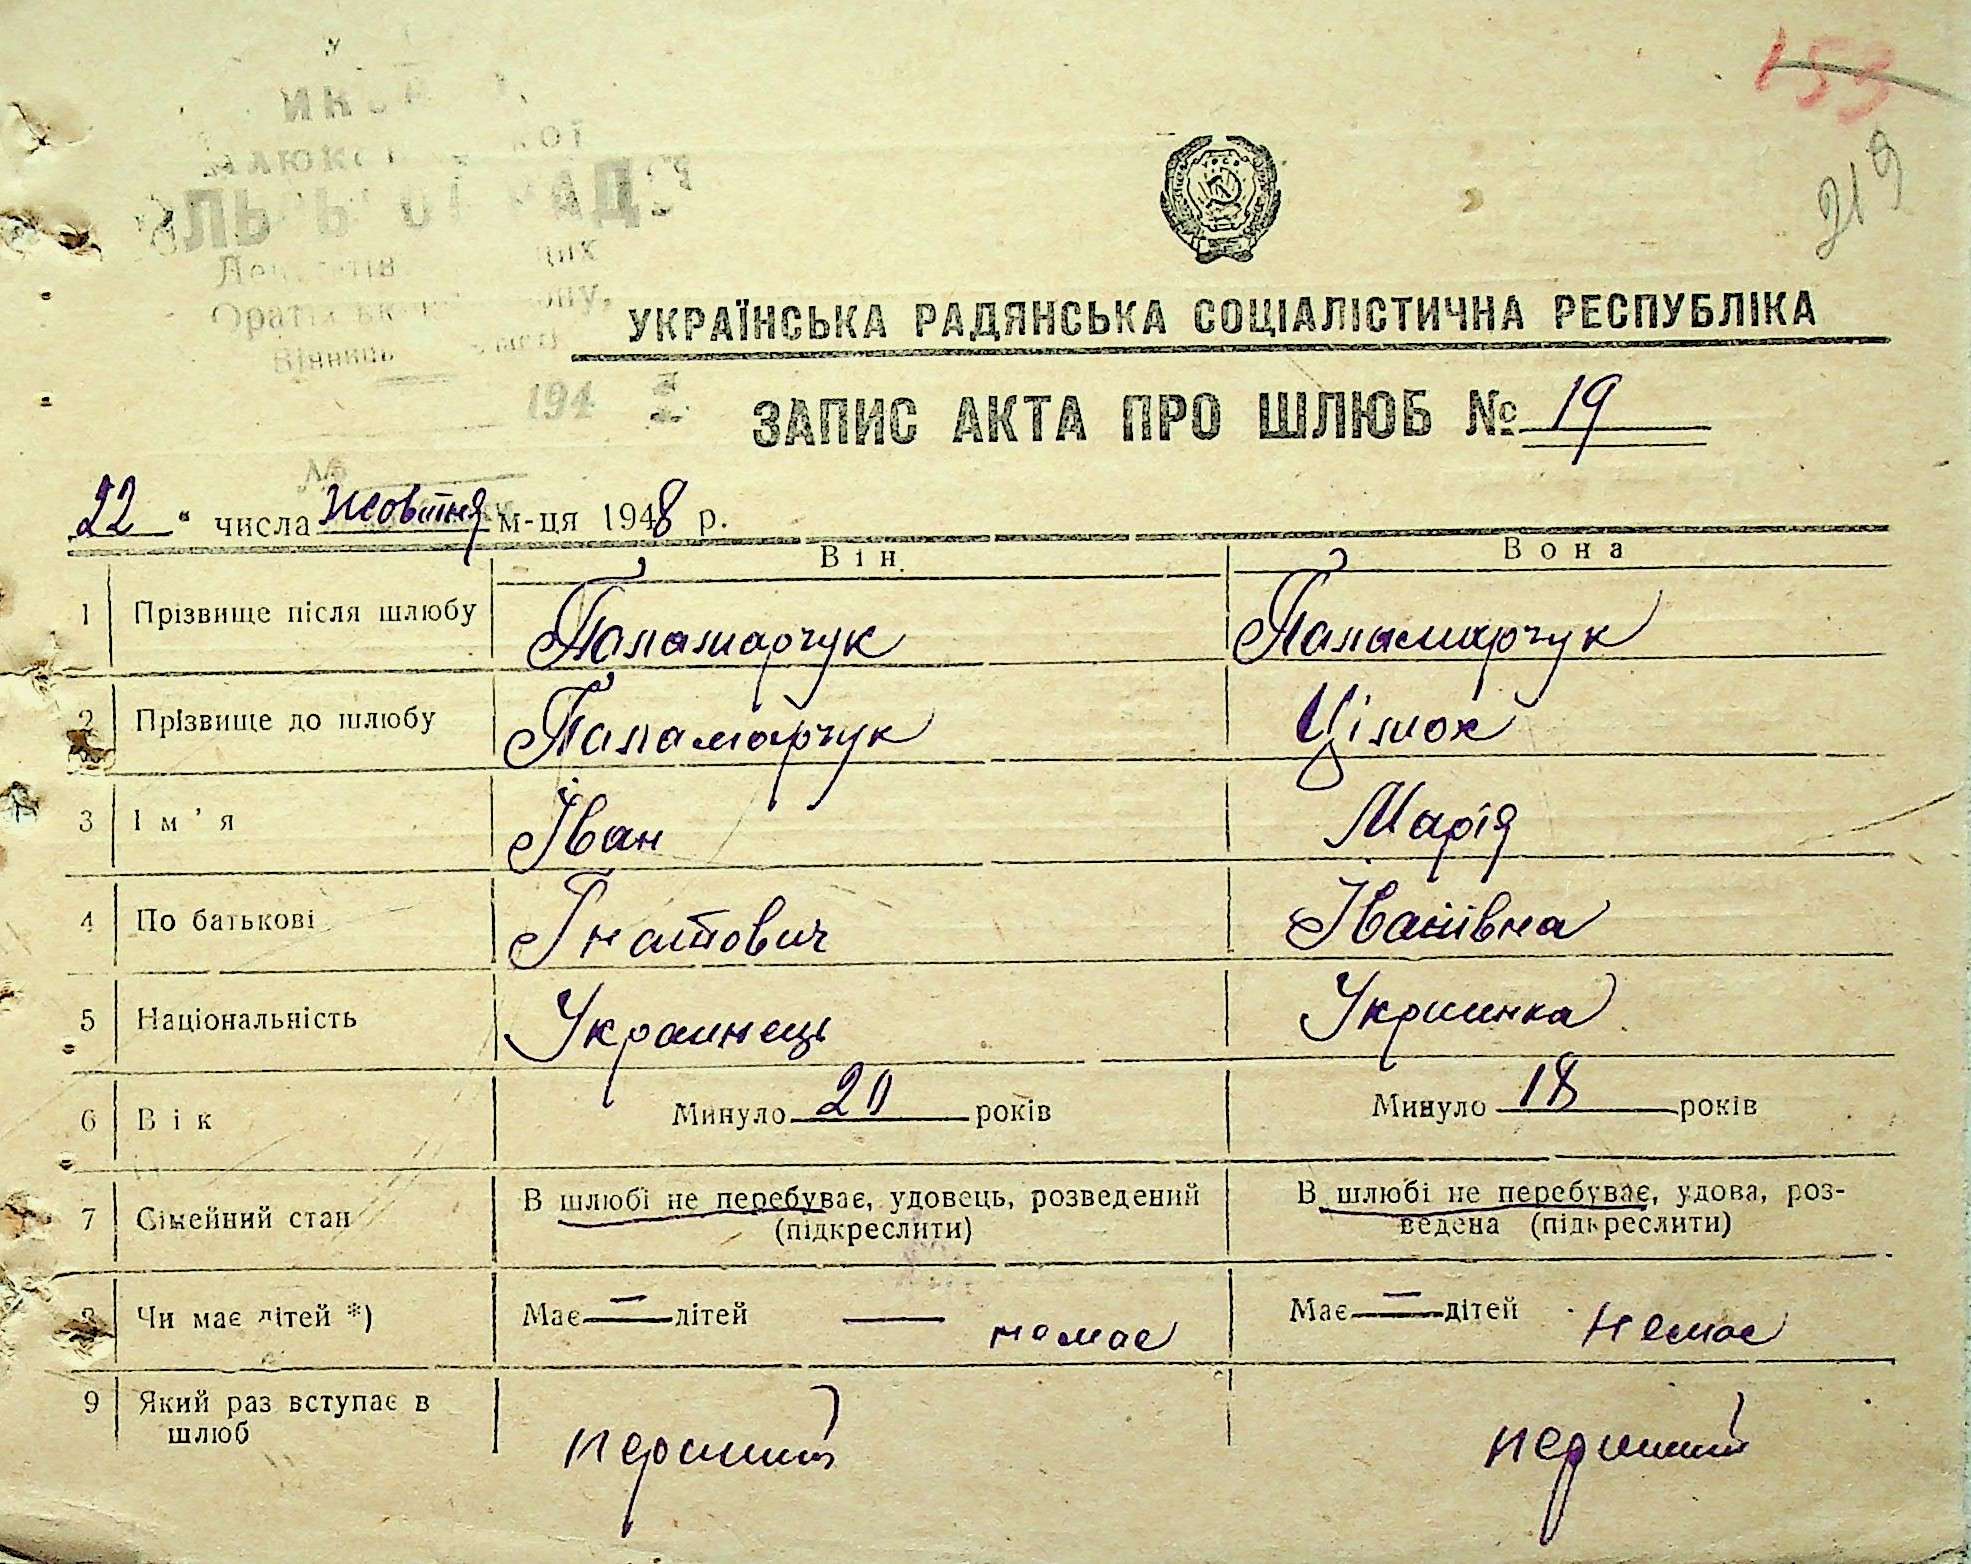 153
219
УКРАЇНСЬКА РАДЯНСЬКА СОЦІАЛІСТИЧНА РЕСПУБЛІКА
194
ЗАПИС АКТА ПРО ШЛЮБ № 19
№
22 " числа жовтня м-ця 1948 р.
Він. Вона
1 Прізвище після шлюбу Паламарчук Паламарчук
2 Прізвище до шлюбу Паламарчук
3 Ім'я Іван Марія
4 По батькові Гнатович Іванівна
5 Національність Украинець Украинка
6 Вік Минуло 20 років Минуло 18 років
7 Сімейний стан В шлюбі не перебуває, удовець, розведений В шлюбі не перебуває, удова, роз-
(підкреслити) ведена (підкреслити)
8 Чи має дітей *) Має — дітей — немає Має — дітей немає
9 Який раз вступає в
шлюб перший перший